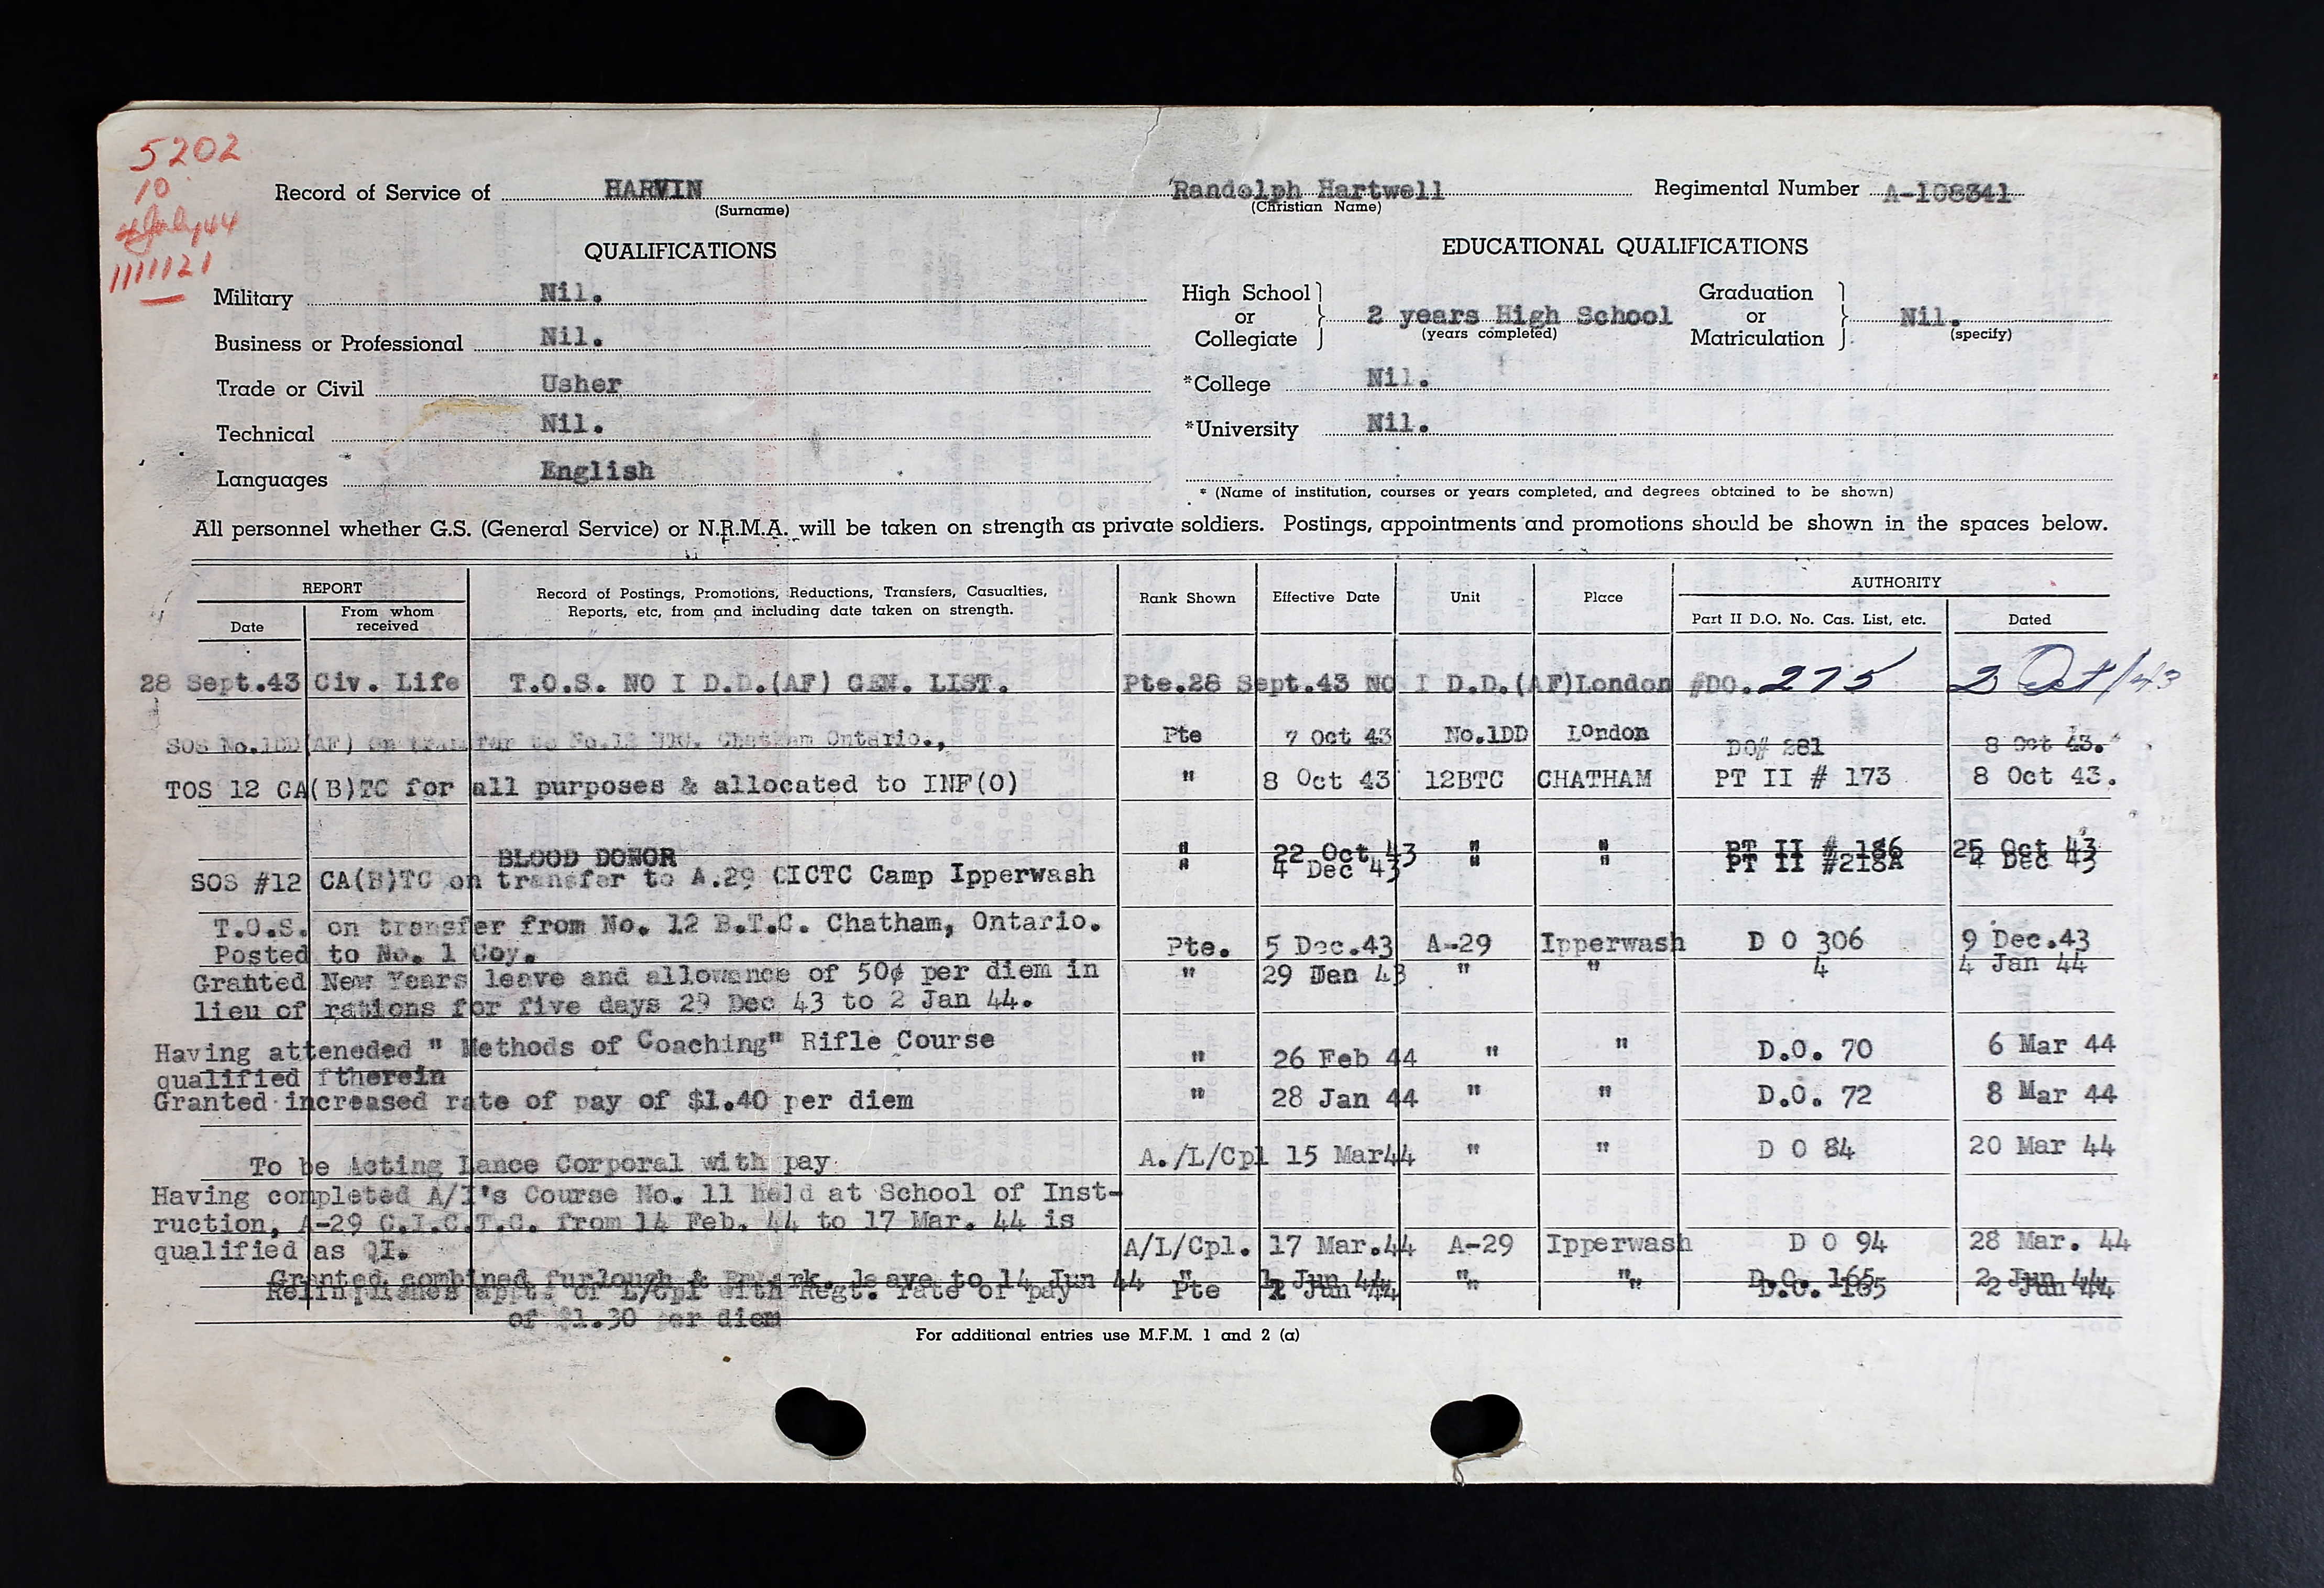 5202
10
4 July 44
1111121
Record of Service of HARVIN Randolph Hartwell Regimental Number A-108341
(Surname) (Christian Name)
QUALIFICATIONS
Military Nil.
Business or Professional Nil.
Trade or Civil Usher
Technical Nil.
Languages English
EDUCATIONAL QUALIFICATIONS
High School or Collegiate 2 years High School (years completed) Graduation or Matriculation Nil. (specify)
*College Nil.
*University Nil.
* (Name of institution, courses or years completed, and degrees obtained to be shown)
All personnel whether G.S. (General Service) or N.R.M.A. will be taken on strength as private soldiers. Postings, appointments and promotions should be shown in the spaces below.
REPORT
Date From whom received
Record of Postings, Promotions, Reductions, Transfers, Casualties,
Reports, etc, from and including date taken on strength.
Rank Shown Effective Date Unit Place
AUTHORITY
Part II D.O. No. Cas. List, etc. Dated
28 Sept.43 Civ. Life T.O.S. NO I D.D.(AF) GEN. LIST. Pte. 28 Sept.43 NO I D.D.(AF) London #DO. 275 2 Oct/43
SOS No.1DD(AF) on transfer to No.12 Chatham Ontario., Pte 7 Oct 43 No.1DD London DO# 281 8 Oct 43.
TOS 12 CA(B)TC for all purposes & allocated to INF(O) " 8 Oct 43 12BTC CHATHAM PT II # 173 8 Oct 43.
BLOOD DONOR " 22 Oct 43 " " PT II # 186 25 Oct 43
SOS #12 CA(B)TC on transfer to A.29 CICTC Camp Ipperwash " 4 Dec 43 " " PT II #218A 4 Dec 43
T.O.S. on transfer from No. 12 B.T.C. Chatham, Ontario.
Posted to No. 1 Coy. Pte. 5 Dec.43 A-29 Ipperwash D O 306 9 Dec.43
Granted New Years leave and allowance of 50¢ per diem in " 29 43 " " 4 4 Jan 44
lieu of rations for five days 29 Dec 43 to 2 Jan 44.
Having atteneded " Methods of Coaching" Rifle Course " 26 Feb 44 " " D.O. 70 6 Mar 44
qualified therein
Granted increased rate of pay of $1.40 per diem " 28 Jan 44 " " D.O. 72 8 Mar 44
To be Acting Lance Corporal with pay A./L/Cpl 15 Mar44 " " D O 84 20 Mar 44
Having completed A/I's Course No. 11 held at School of Inst-
ruction, A-29 C.I.C.T.C. from 14 Feb. 44 to 17 Mar. 44 is
qualified as QI. A/L/Cpl. 17 Mar.44 A-29 Ipperwash D O 94 28 Mar. 44
Granted combined furlough & Embark. leave to 14 Jun 44 " 1 Jun 44 " " D.O. 165 2 Jun 44
Relinquishes appt. of L/Cpl with Regt. rate of pay Pte Jun 44 " " D.O. 165 2 Jun 44
of $1.30 per diem
For additional entries use M.F.M. 1 and 2 (a)